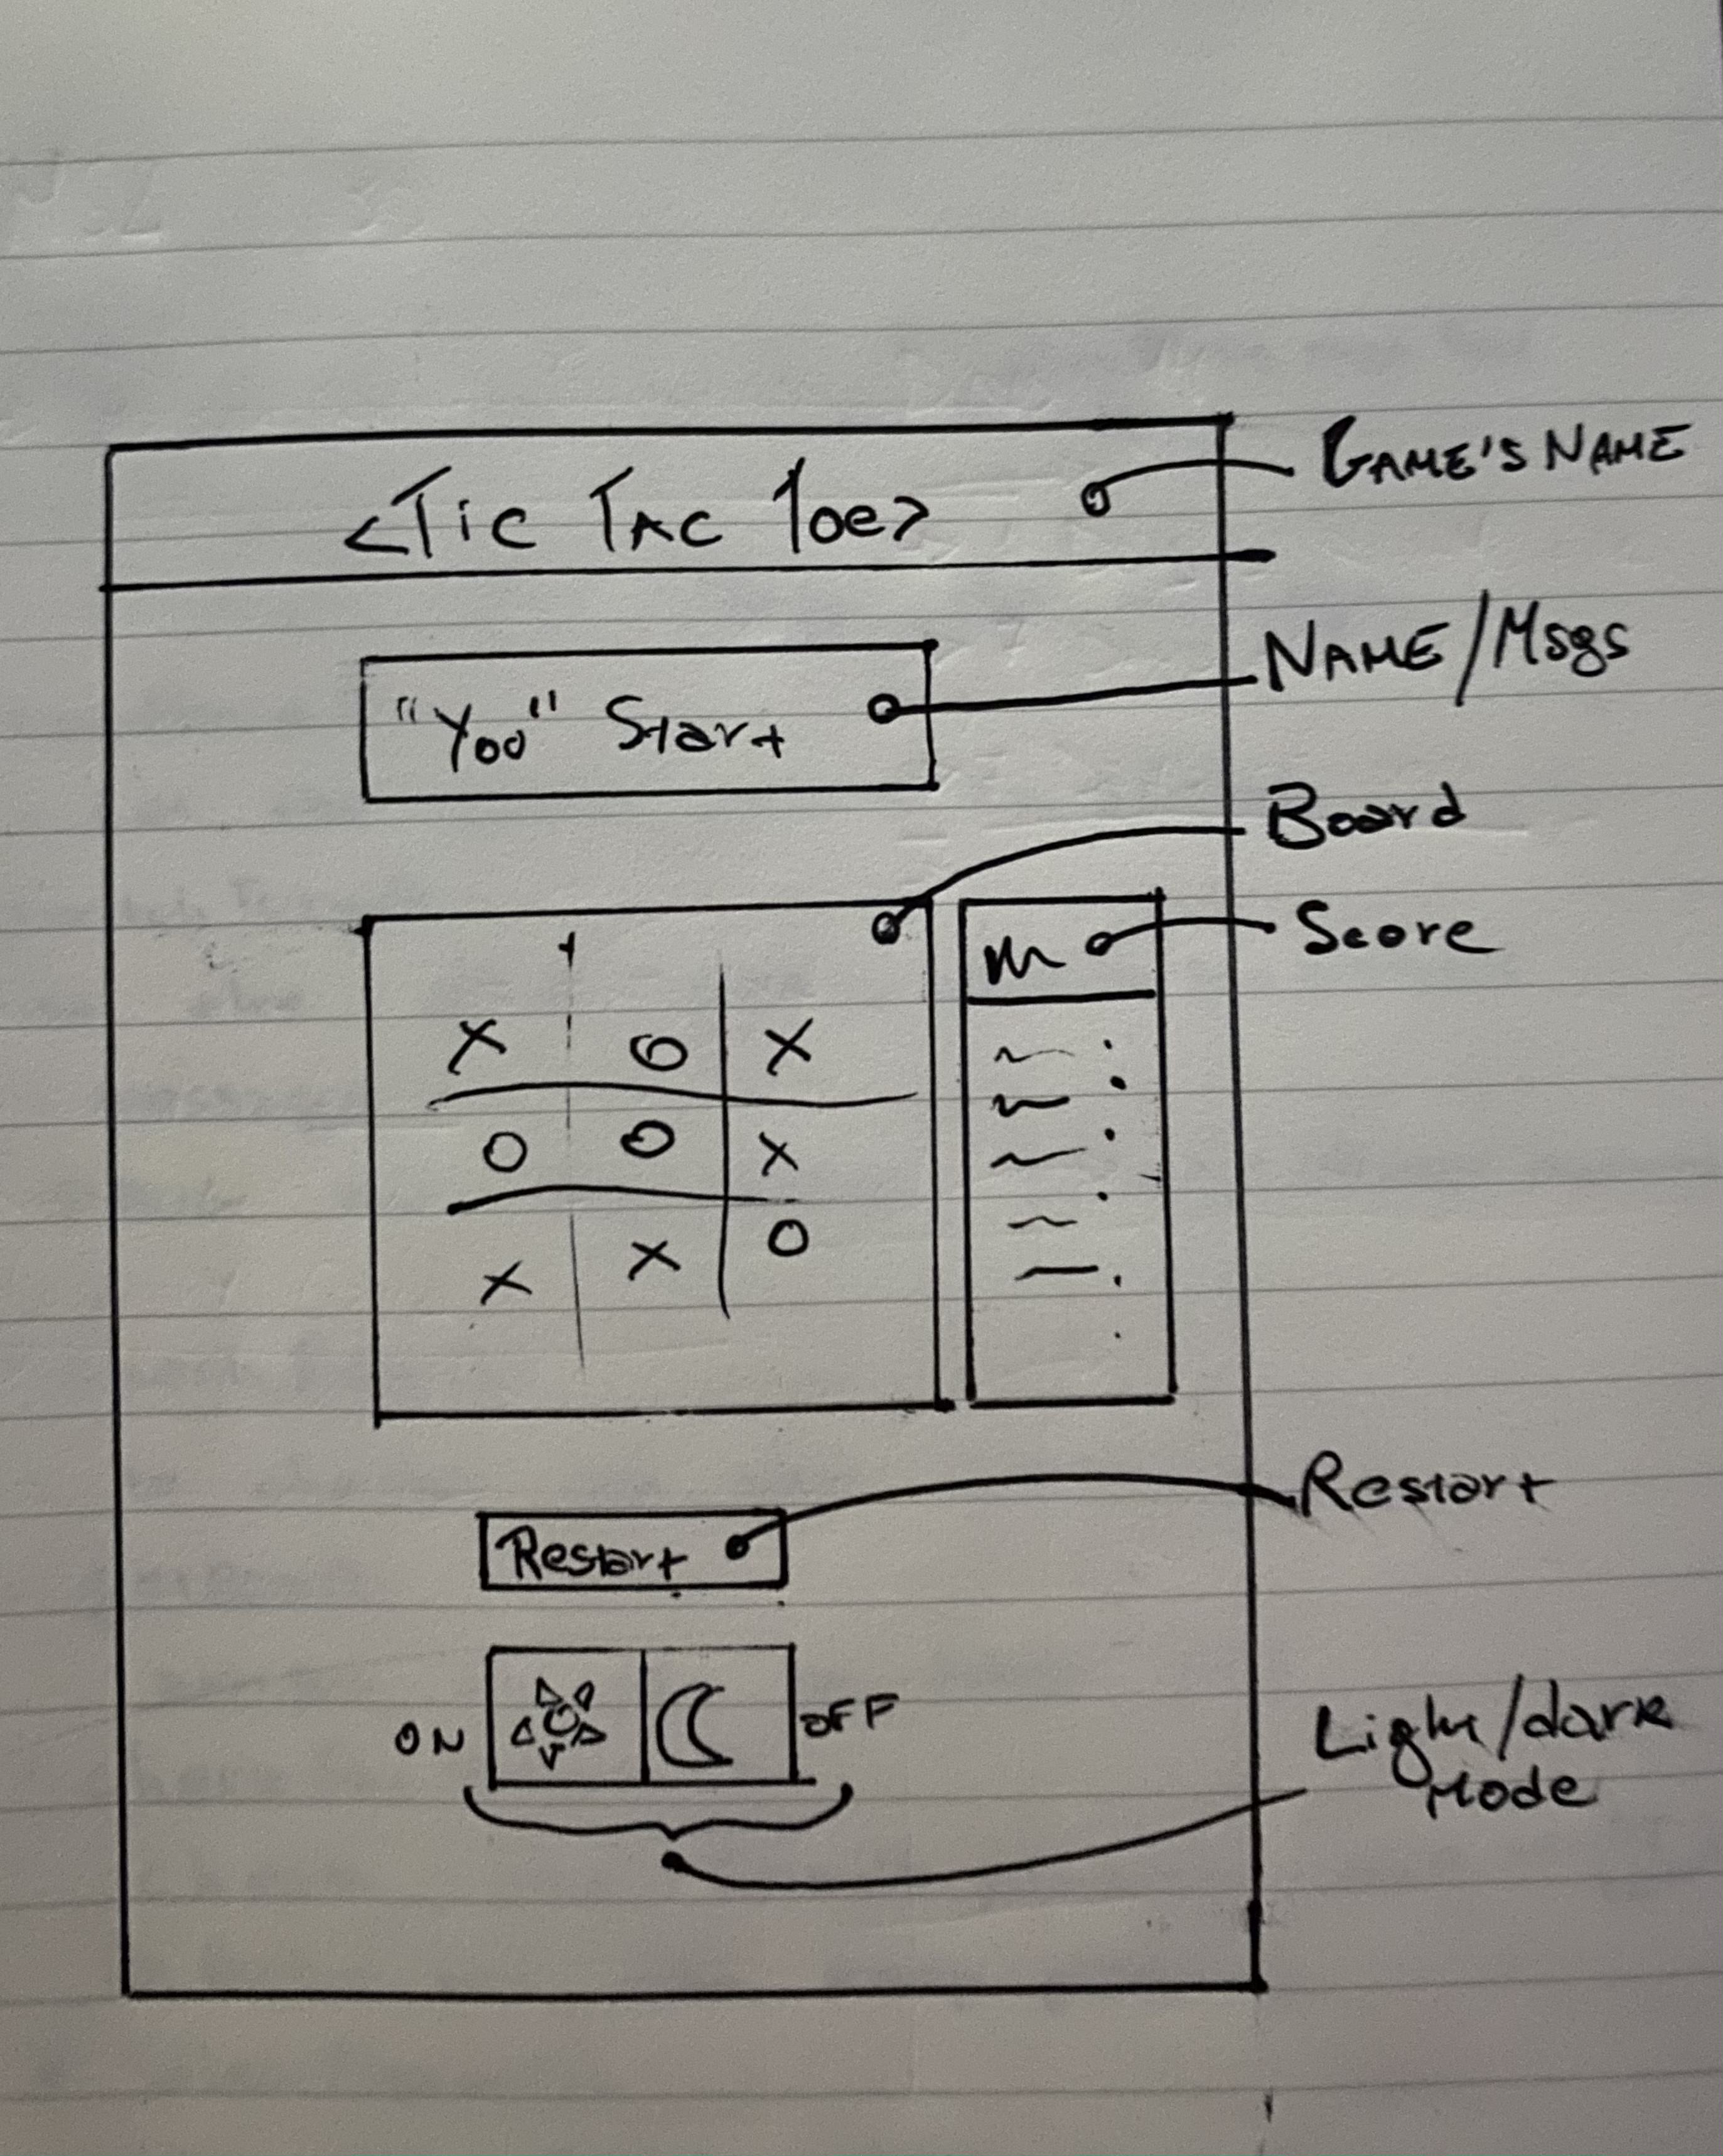 <Tic Tac Toe>
GAME'S NAME
"You" Start
NAME/Msgs
Board
Score
X O X
O O X
X X O
Restart
Restart
ON
OFF
Light/dark
Mode